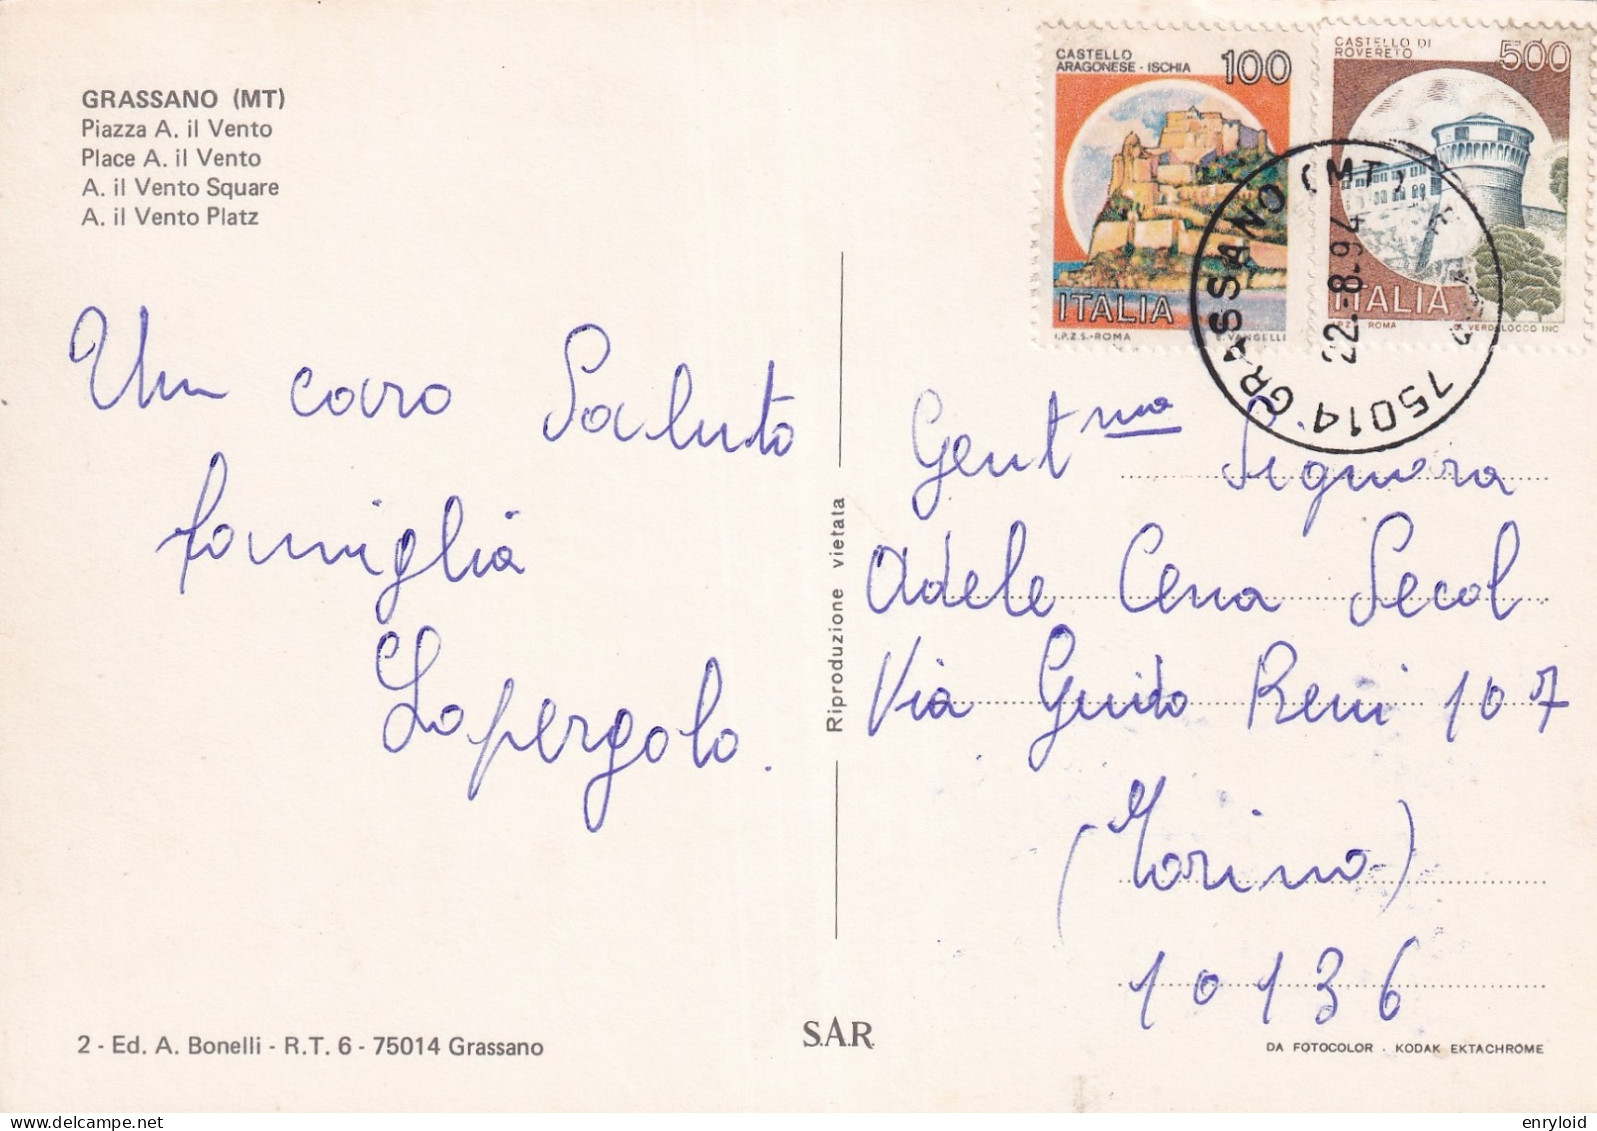 GRASSANO (MT)
Piazza A. il Vento
Place A. il Vento
A. il Vento Square
A. il Vento Platz
CASTELLO
ARAGONESE - ISCHIA
100
ITALIA
I.P.Z.S. - ROMA
E. VANGELLI
CASTELLO DI
ROVERETO
500
ITALIA
I.P.Z.S. ROMA
VERDELOCCO INC
75014 GRASSANO (MT)
22-8-94
Un caro Saluto
famiglia
Lopergolo.
Riproduzione vietata
Gent.ma Signora
Adele Cena Secol
Via Guido Reni 107
(Torino)
10136
2 - Ed. A. Bonelli - R.T. 6 - 75014 Grassano
S.A.R.
DA FOTOCOLOR - KODAK EKTACHROME
enryloid